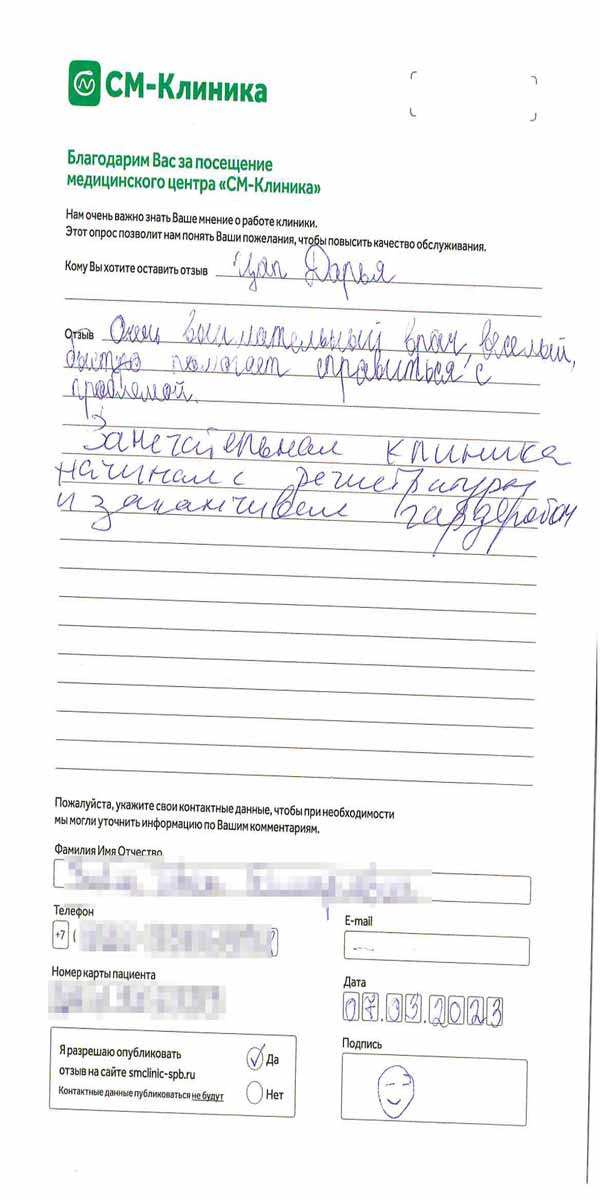 СМ-Клиника
Благодарим Вас за посещение
медицинского центра «СМ-Клиника»
Нам очень важно знать Ваше мнение о работе клиники.
Этот опрос позволит нам понять Ваши пожелания, чтобы повысить качество обслуживания.
Кому Вы хотите оставить отзыв Цап Дарья
Отзыв Очень внимательный врач, веселый,
быстро помогает справиться с
проблемой.
Замечательная клиника
начиная с регистратуры
и заканчивая гардеробом
Пожалуйста, укажите свои контактные данные, чтобы при необходимости
мы могли уточнить информацию по Вашим комментариям.
Фамилия Имя Отчество
Телефон
E-mail
+7 (
Номер карты пациента
Дата
07.03.2023
Я разрешаю опубликовать
отзыв на сайте smclinic-spb.ru
Контактные данные публиковаться не будут
Да
Нет
Подпись